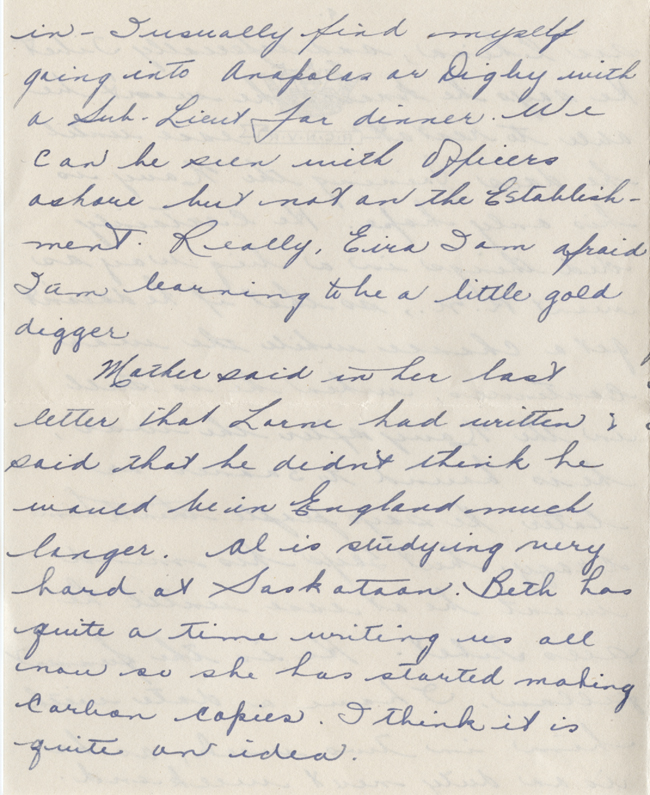 in - I usually find myself
going into Anapolas or Digby with
a Sub-Lieut for dinner. We
can be seen with Officers
ashore but not on the Establish-
ment. Really, Eira I am afraid
I am learning to be a little gold
digger
Mother said in her last
letter that Lorne had written &
said that he didn't think he
would be in England much
longer. Al is studying very
hard at Saskatoon. Beth has
quite a time writing us all
now so she has started making
carbon copies. I think it is
quite an idea.